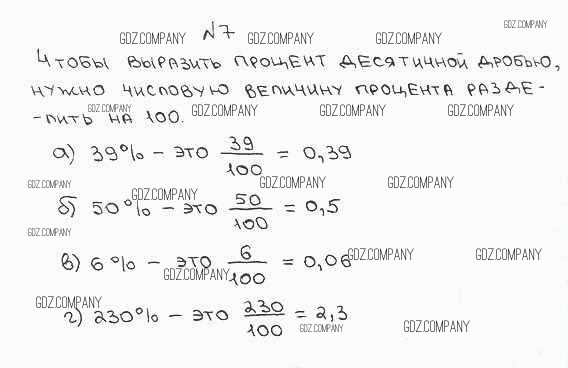 GDZ.COMPANY
GDZ.COMPANY №7 GDZ.COMPANY GDZ.COMPANY
Чтобы выразить процент десятичной дробью,
нужно числовую величину процента разде-
GDZ.COMPANY GDZ.COMPANY GDZ.COMPANY GDZ.COMPANY
-лить на 100.
а) 39% - это 39/100 = 0,39
GDZ.COMPANY GDZ.COMPANY GDZ.COMPANY
GDZ.COMPANY
б) 50% - это 50/100 = 0,5
GDZ.COMPANY
GDZ.COMPANY GDZ.COMPANY
в) 6% - это 6/100 = 0,06
GDZ.COMPANY
GDZ.COMPANY
г) 230% - это 230/100 = 2,3
GDZ.COMPANY GDZ.COMPANY